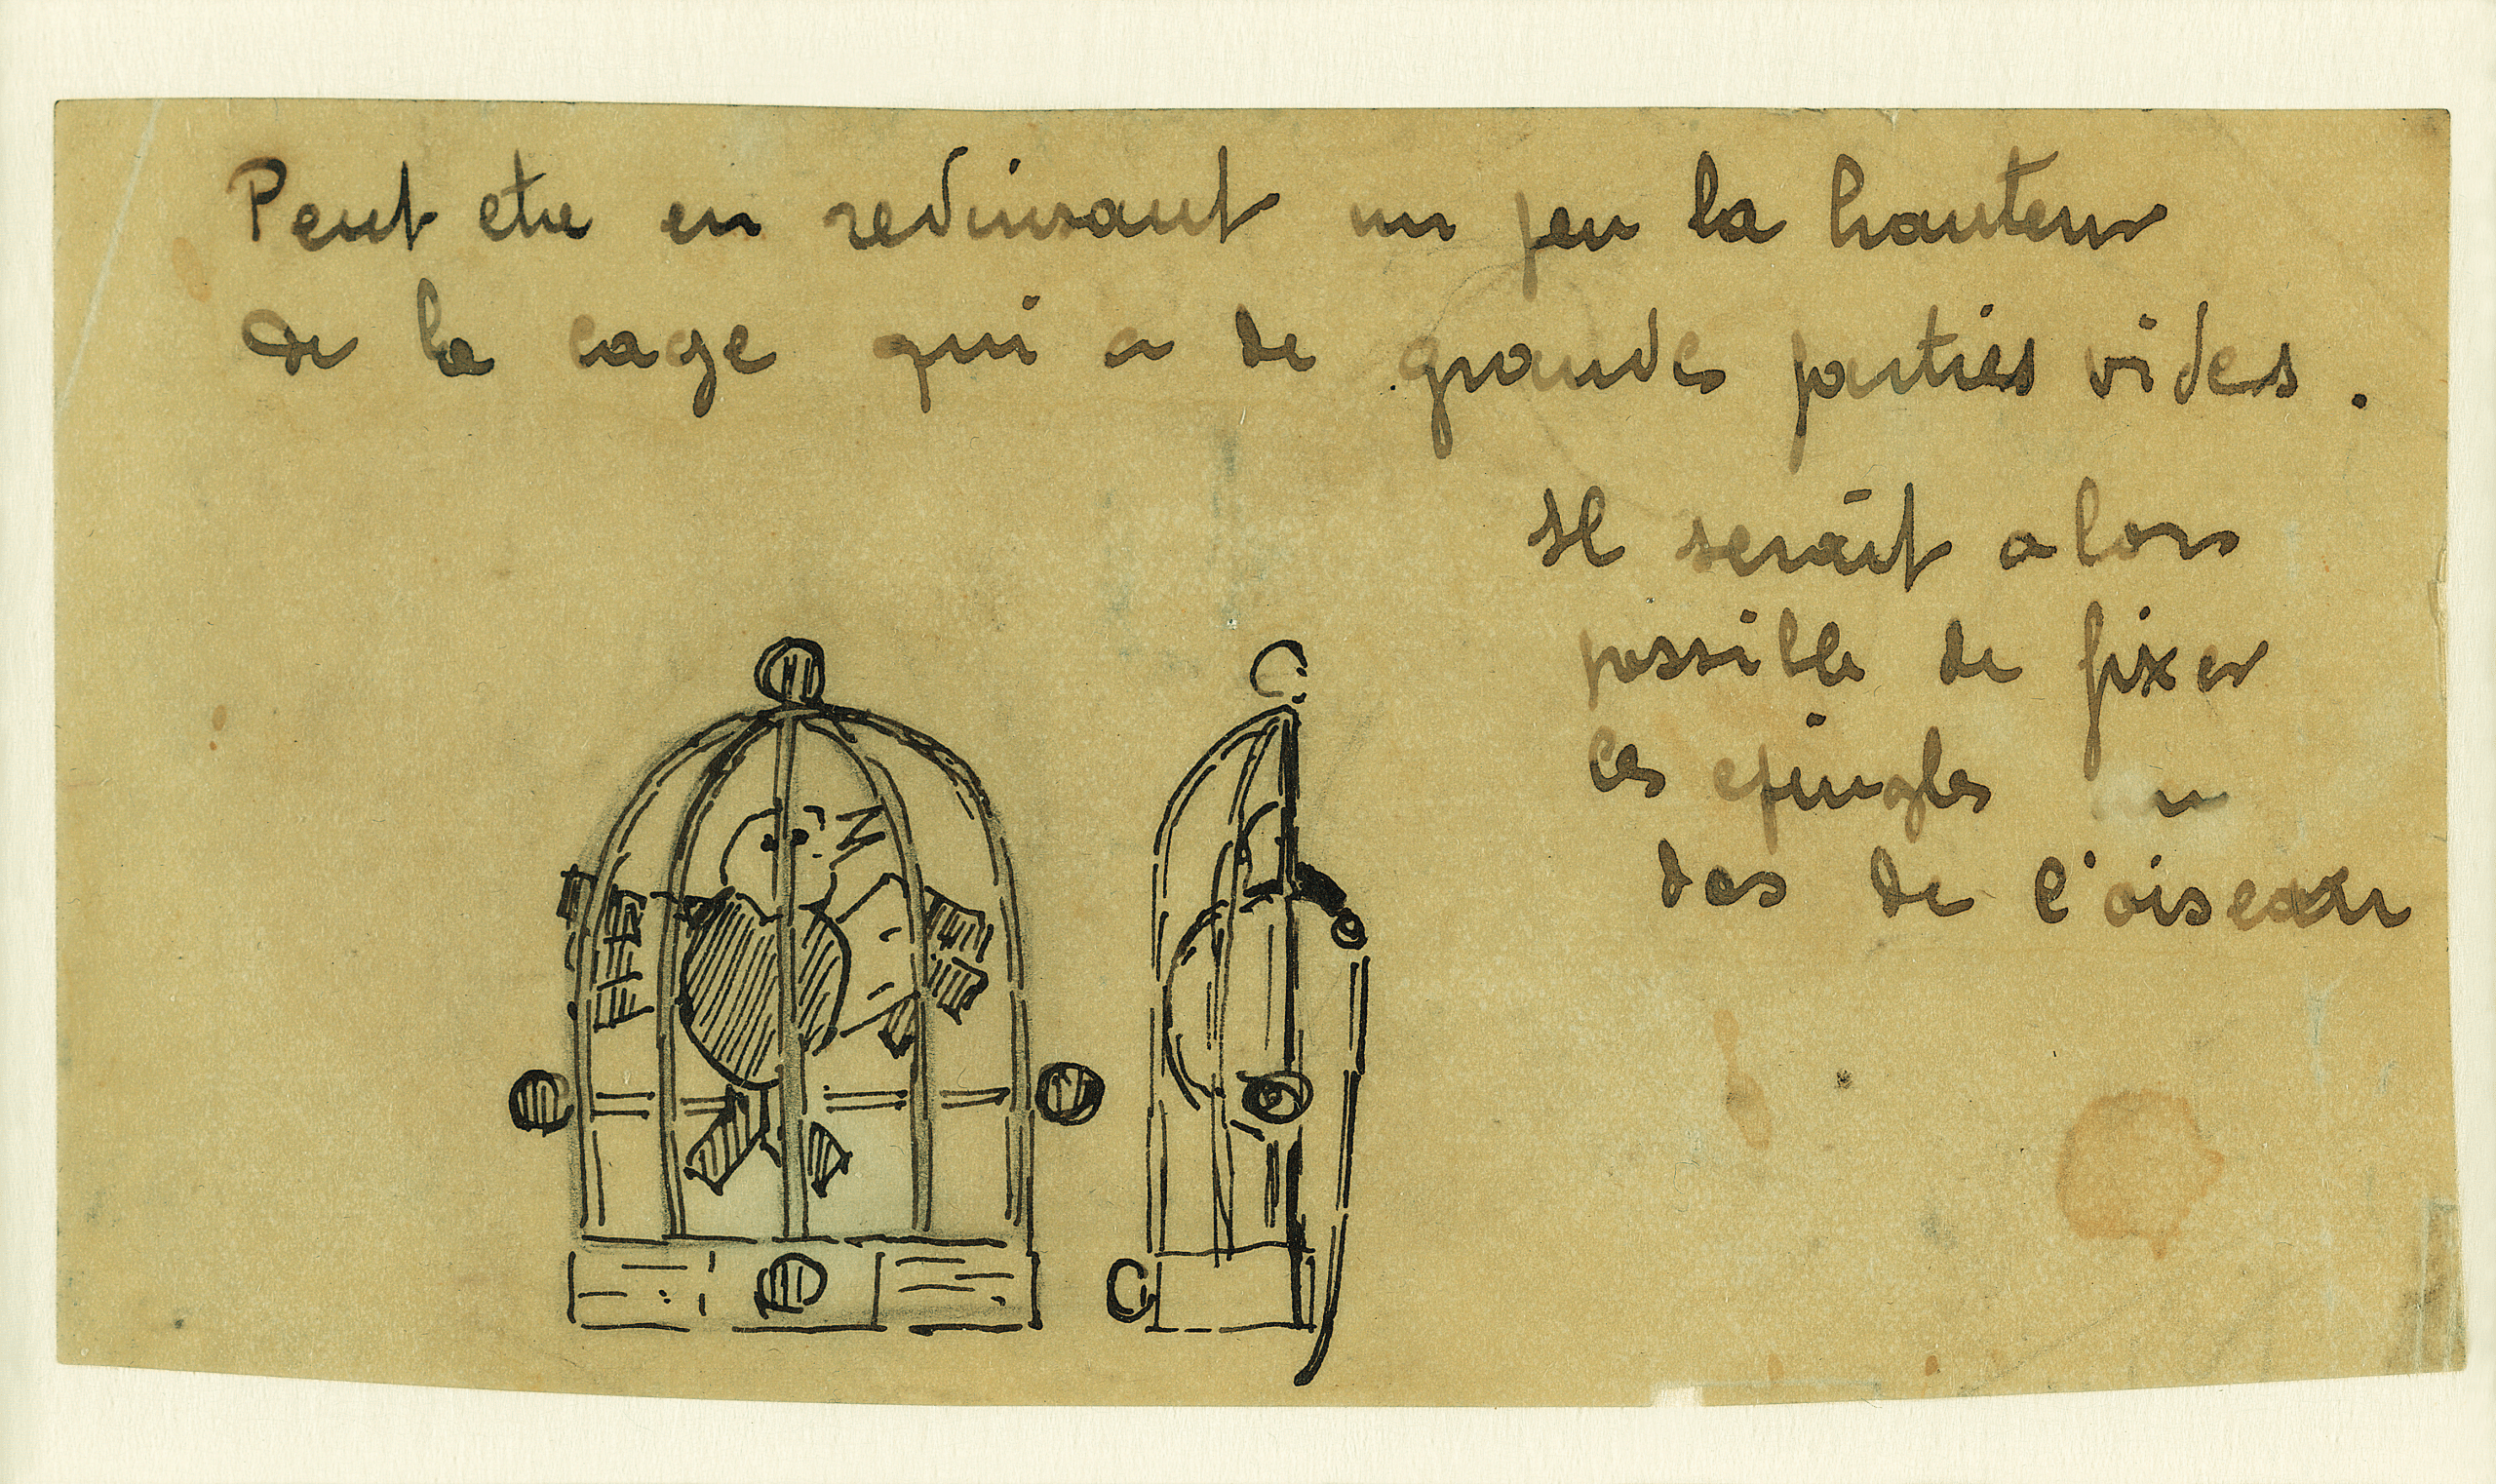 Peut etre en reduisant un peu la hauteur
de la cage qui a de grandes parties vides.
Il serait alors
possible de fixer
les epingles au
dos de l'oiseau